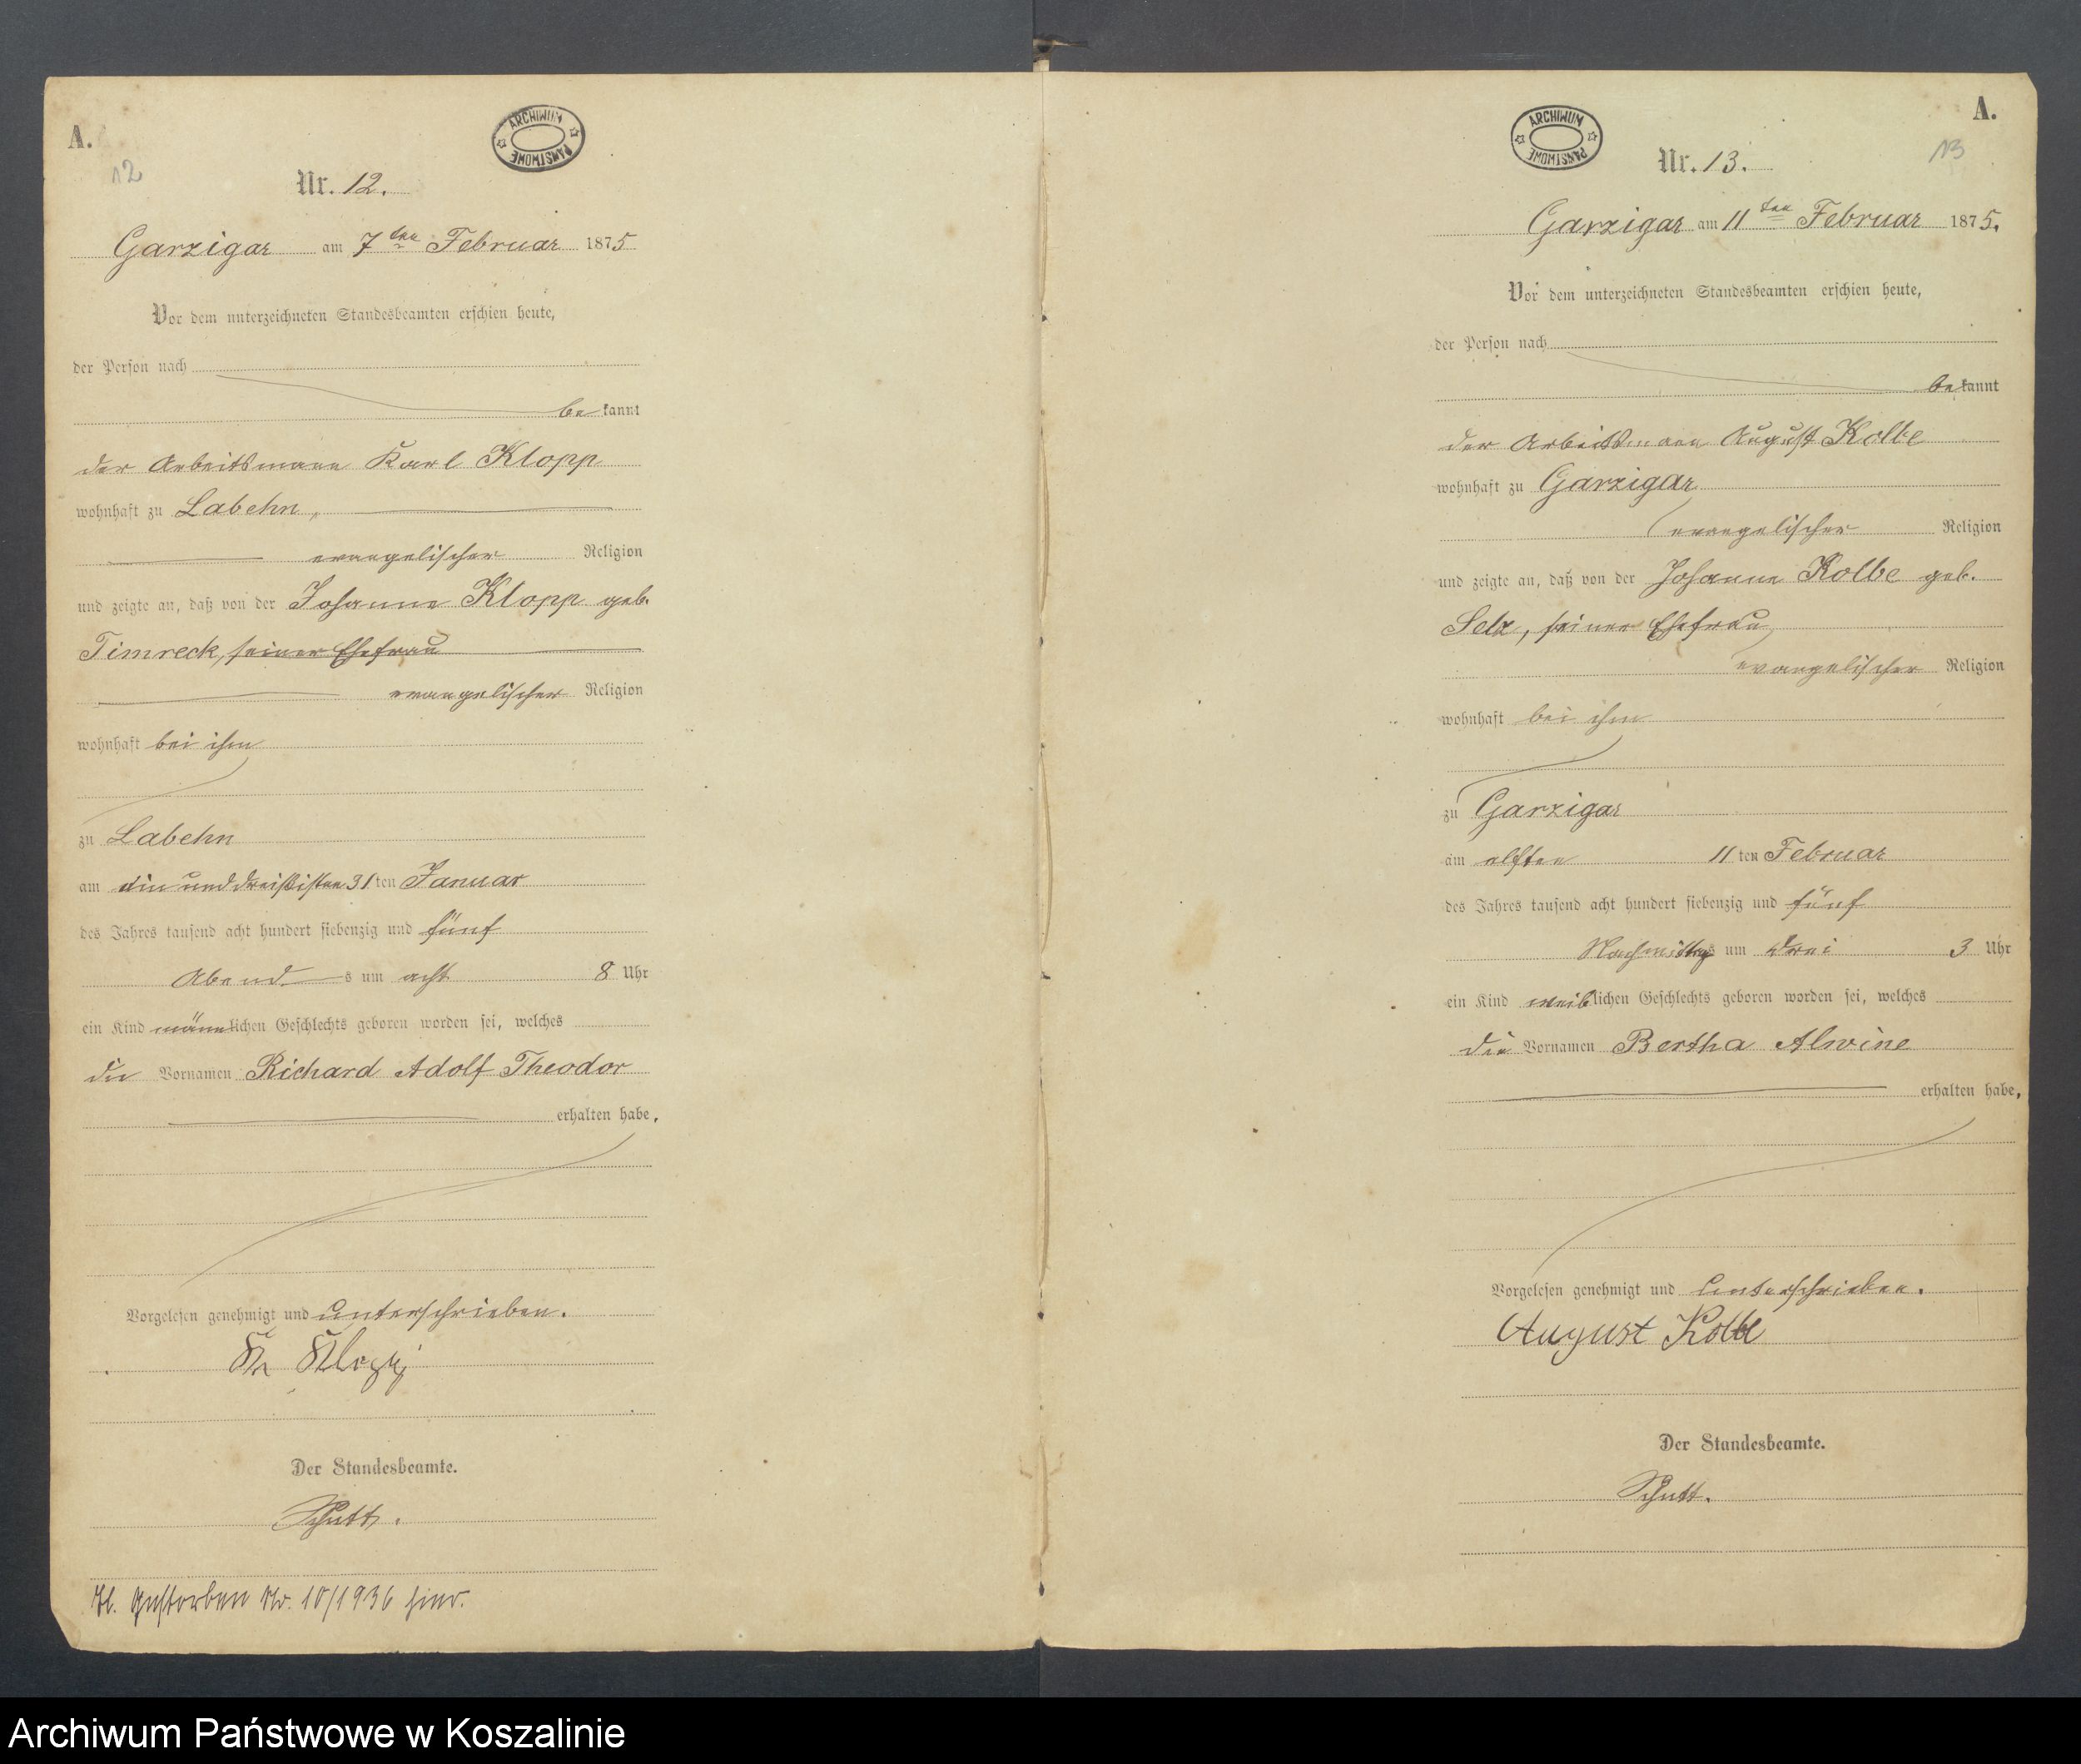 A.
12
ARCHIWUM PAŃSTWOWE
Nr. 12.
Garzigar am 7ten Februar 1875
Vor dem unterzeichneten Standesbeamten erschien heute,
der Person nach
bekannt
der Arbeitsmann Karl Klopp
wohnhaft zu Labehn,
evangelischer Religion
und zeigte an, daß von der Johanne Klopp geb.
Timreck, seiner Ehefrau
evangelischer Religion
wohnhaft bei ihm
zu Labehn
am ein und dreißisten 31ten Januar
des Jahres tausend acht hundert siebenzig und fünf
Abends um acht 8 Uhr
ein Kind männlichen Geschlechts geboren worden sei, welches
die Vornamen Richard Adolf Theodor
erhalten habe,
Vorgelesen genehmigt und unterschrieben.
Klopp
Der Standesbeamte.
Schütt.
gestorben Nr. 10/1936 hier.
A.
13
ARCHIWUM PAŃSTWOWE
Nr. 13.
Garzigar am 11ten Februar 1875.
Vor dem unterzeichneten Standesbeamten erschien heute,
der Person nach
bekannt
der Arbeitsmann August Kolbe
wohnhaft zu Garzigar
evangelischer Religion
und zeigte an, daß von der Johanne Kolbe geb.
Selz, seiner Ehefrau
evangelischer Religion
wohnhaft bei ihm
zu Garzigar
am elften 11ten Februar
des Jahres tausend acht hundert siebenzig und fünf
Nachmittags um drei 3 Uhr
ein Kind weiblichen Geschlechts geboren worden sei, welches
die Vornamen Bertha Alwine
erhalten habe,
Vorgelesen genehmigt und unterschrieben.
August Kolbe
Der Standesbeamte.
Schütt.
Archiwum Państwowe w Koszalinie